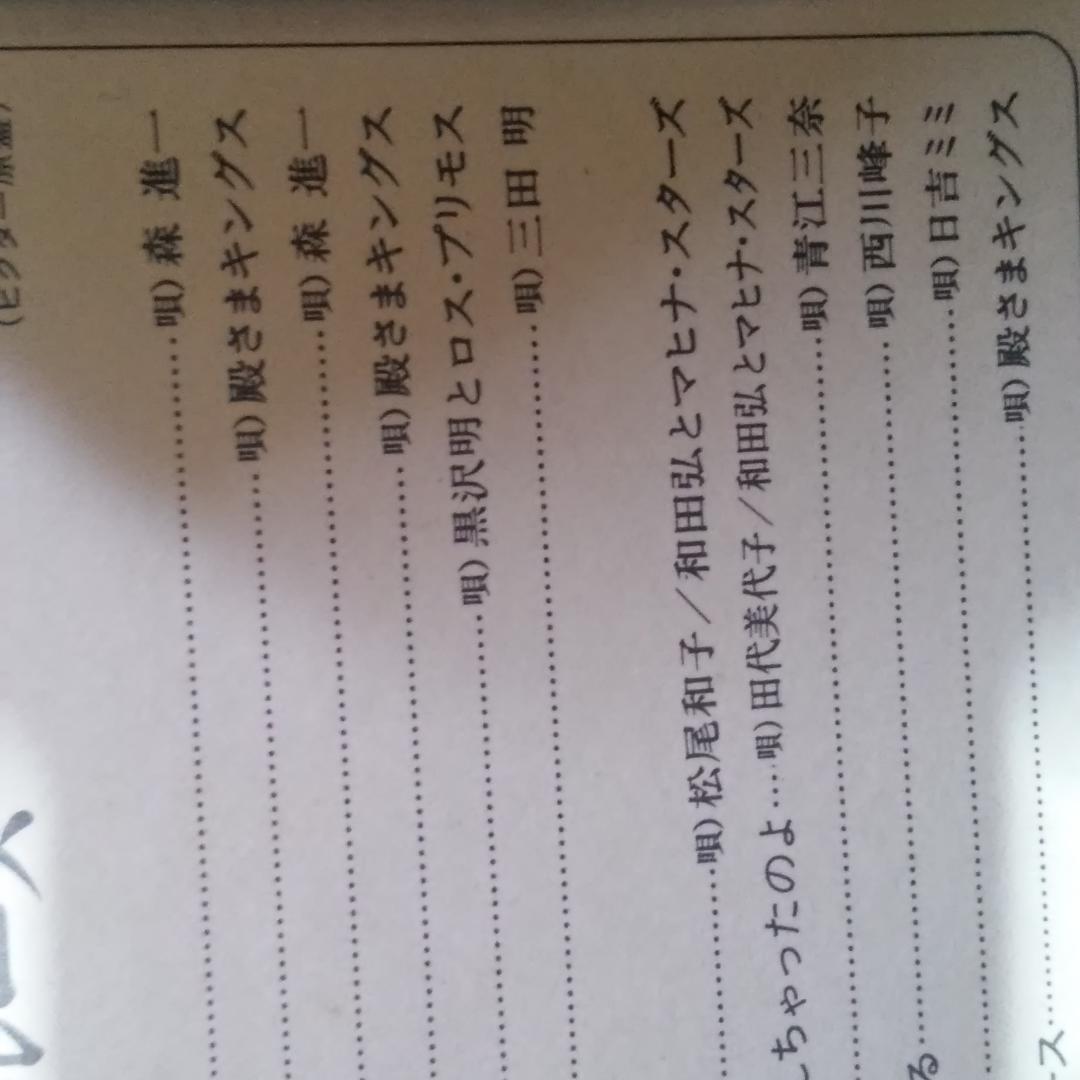 唄）森 進一
唄）殿さまキングス
唄）森 進一
唄）殿さまキングス
唄）黒沢明とロス・プリモス
唄）三田 明
唄）松尾和子／和田弘とマヒナ・スターズ
ちゃったのよ…唄）田代美代子／和田弘とマヒナ・スターズ
唄）青江三奈
唄）西川峰子
る……唄）日吉ミミ
ース……唄）殿さまキングス